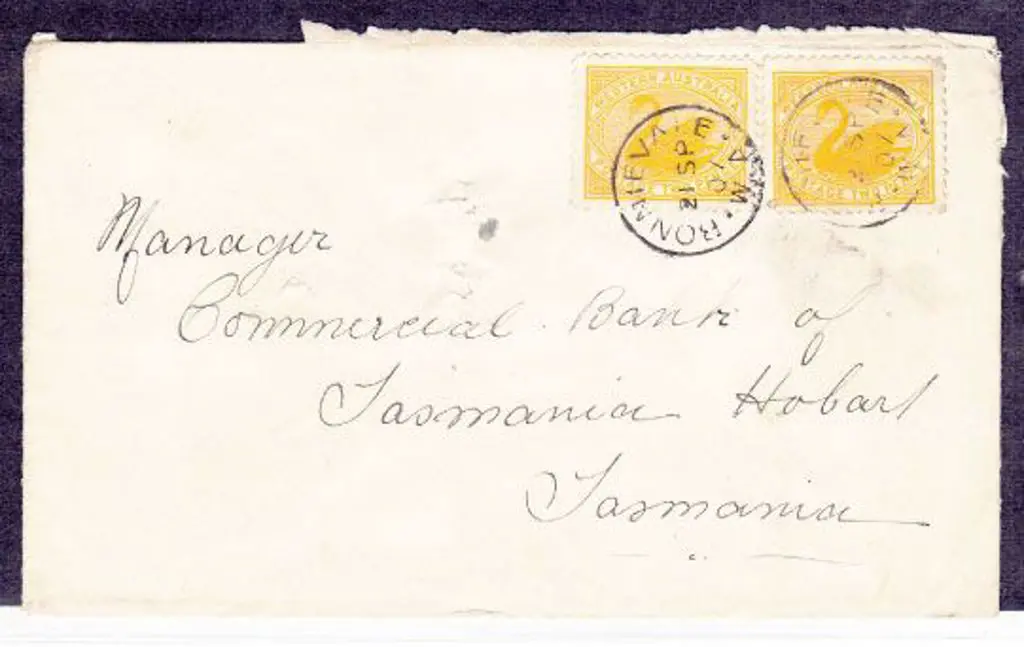 WESTERN AUSTRALIA
BONNIEVALE · W.A
21 SP
01
Manager
Commercial Bank of
Tasmania Hobart
Tasmania